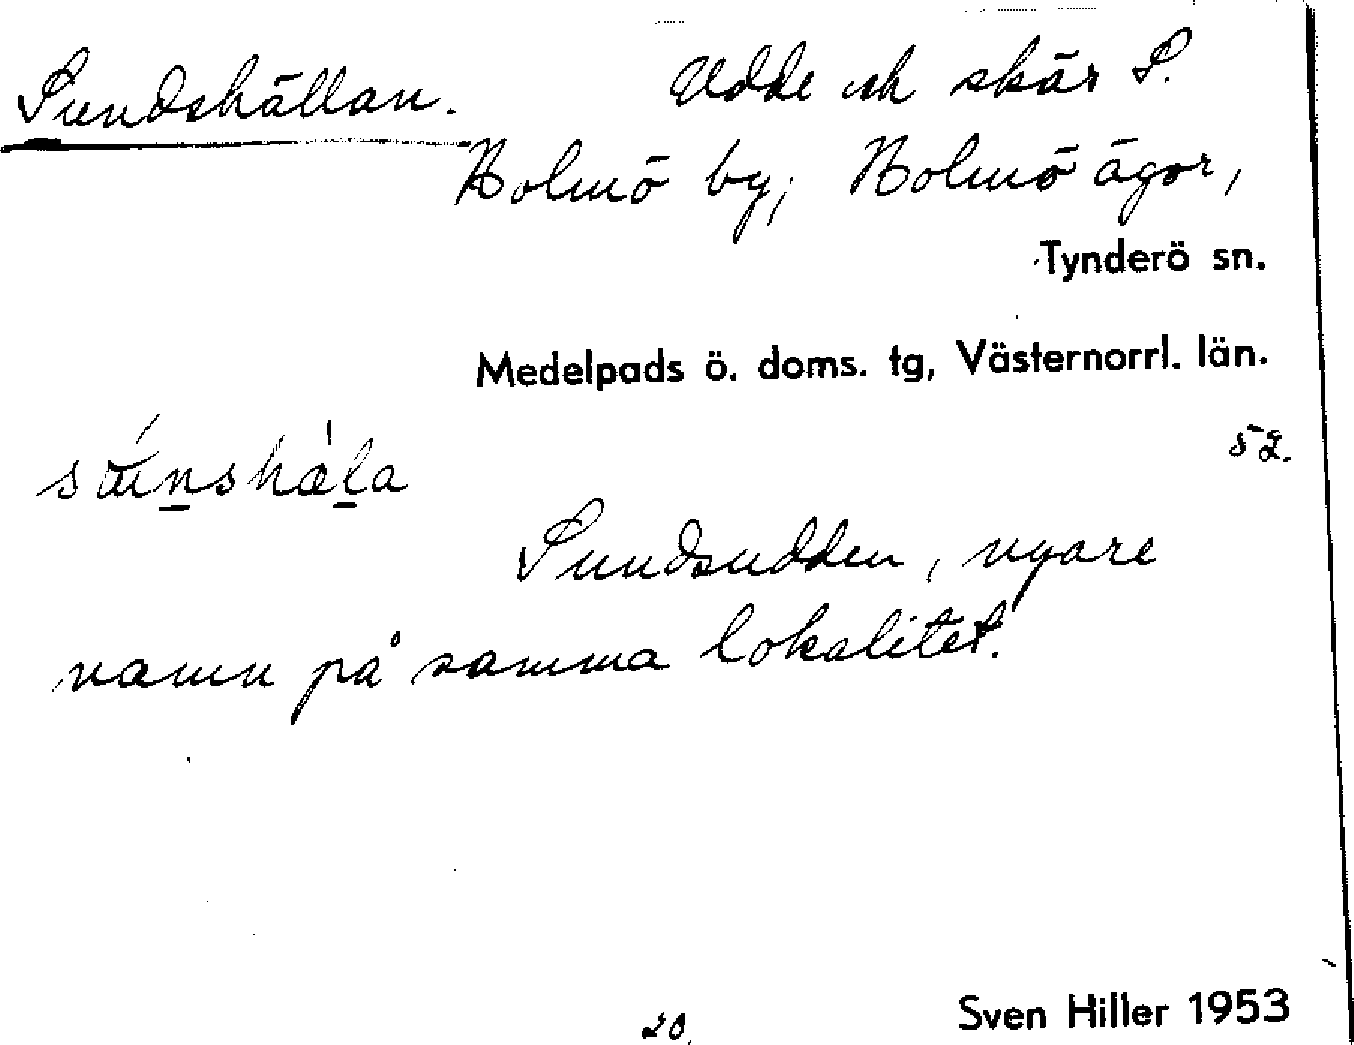 Sundshällan. Udde och skär S.
Holmö by; Holmö ägor,
Tynderö sn.
Medelpads ö. doms. tg, Västernorrl. län.
52.
Sundsudden, nyare
namn på samma lokalitet.
20.
Sven Hiller 1953